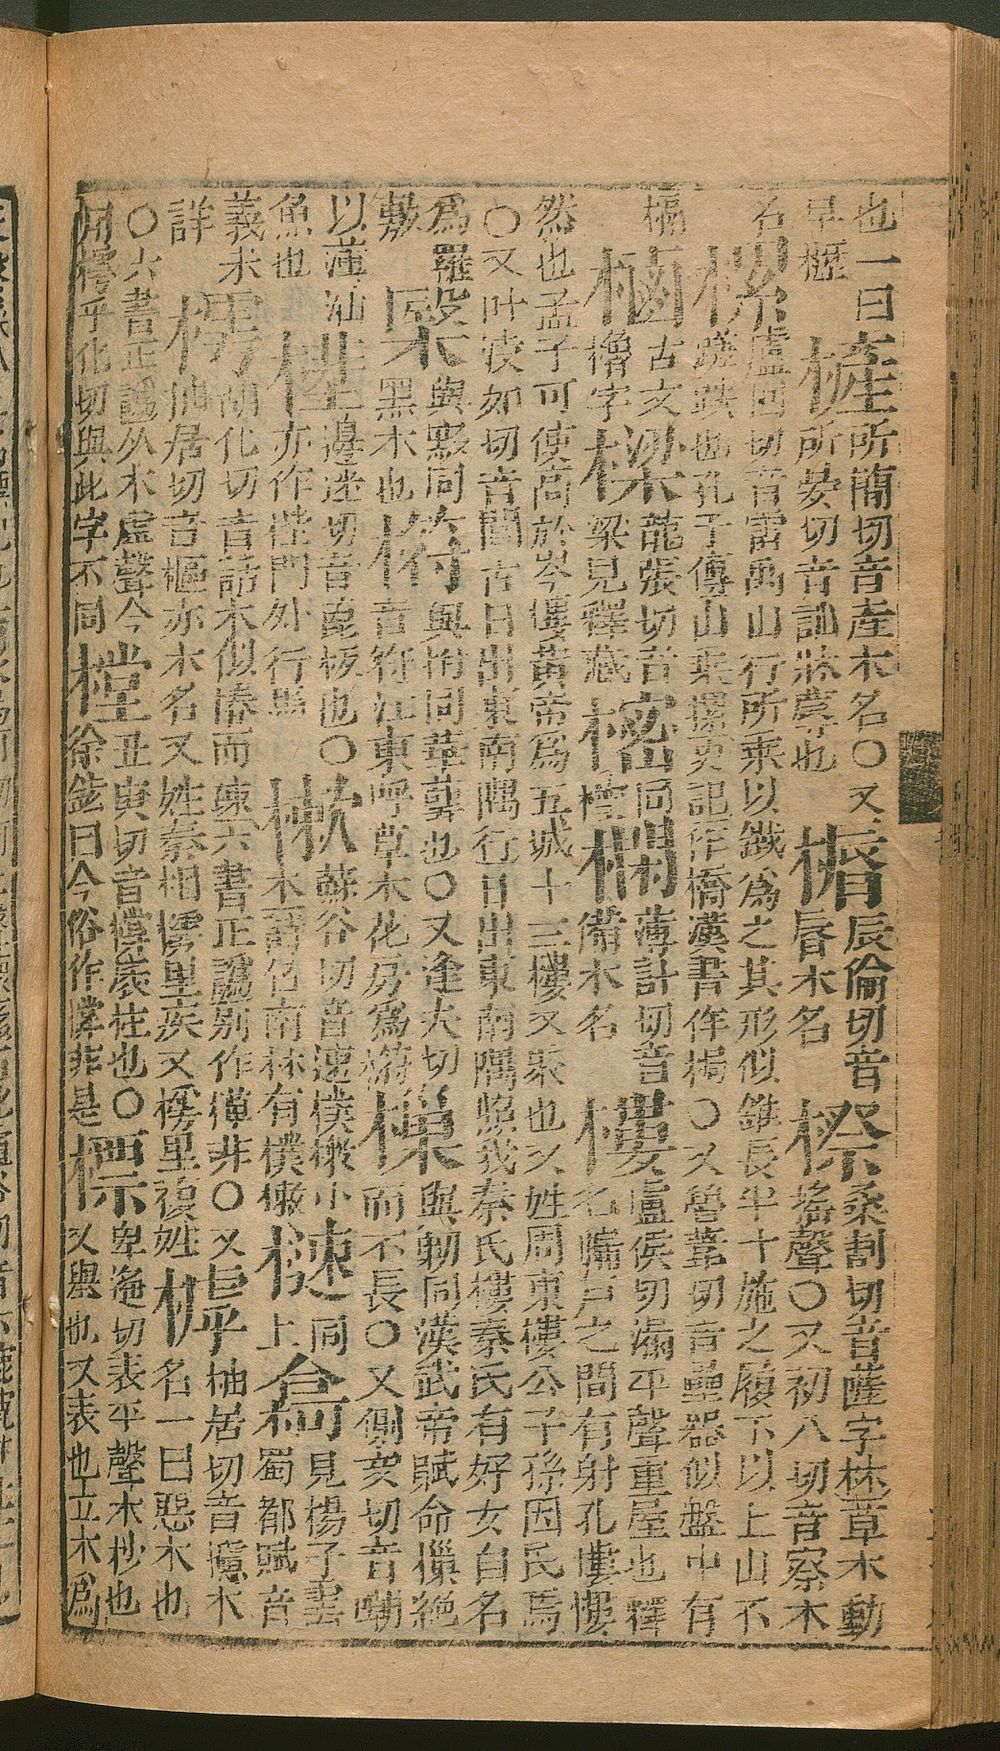 也一曰旱櫪㯆所簡切音產木名〇又所晏切音訕牀簀也 辰倫切音脣木名 桑割切音薩字林草木動搖聲〇又初八切音察木
名樏盧回切音雷禹山行所乘以鐵為之其形似錐長半寸施之履下以上山不蹉跌也孔子傳山乘樏史記作橋漢書作梮〇又魯藟切音壘器似盤中有
槅樐古文櫓字樑龍張切音梁見釋藏樒同櫁 薄計切音備木名樓盧侯切漏平聲重屋也釋名牖戶之間有射孔慺慺
然也孟子可使高於岑樓黃帝為五城十二樓又聚也又姓周東樓公子孫因氏焉〇又叶凌如切音閭古日出東南隅行日出東南隅照我秦氏樓秦氏有好女自名
為羅敷 與黳同黑木也 與柎同華萼也〇又逢夫切音符江東呼草木花房為 樔與勦同漢武帝賦命樔絕而不長〇又側交切音嘲
以薄汕魚也 邊迷切音篦 也〇亦作梐門外行馬樕蘇谷切音速樸樕小木詩召南林有樸樕 同上 見楊子雲蜀都賦音
義未詳樗胡化切音話木似椿而疎六書正譌別作樺非〇又抽居切音樞亦木名又姓秦相樗里疾又樗里複姓 抽居切音攄木名一曰惡木也
〇六書正譌从木虖聲今用樗乎化切與此字不同樘丑庚切音撐衺柱也〇徐鉉曰今俗作撐非是標卑遙切表平聲木杪也又與也又表也立木為